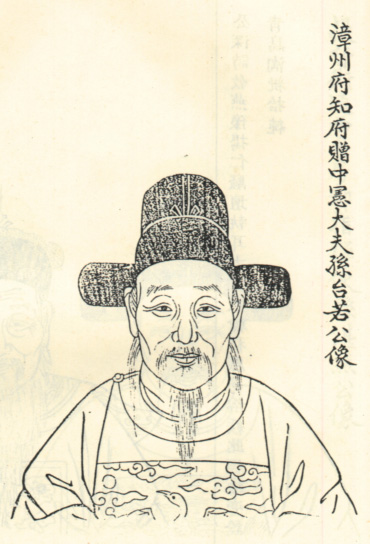 漳州府知府贈中憲大夫孫台若公像